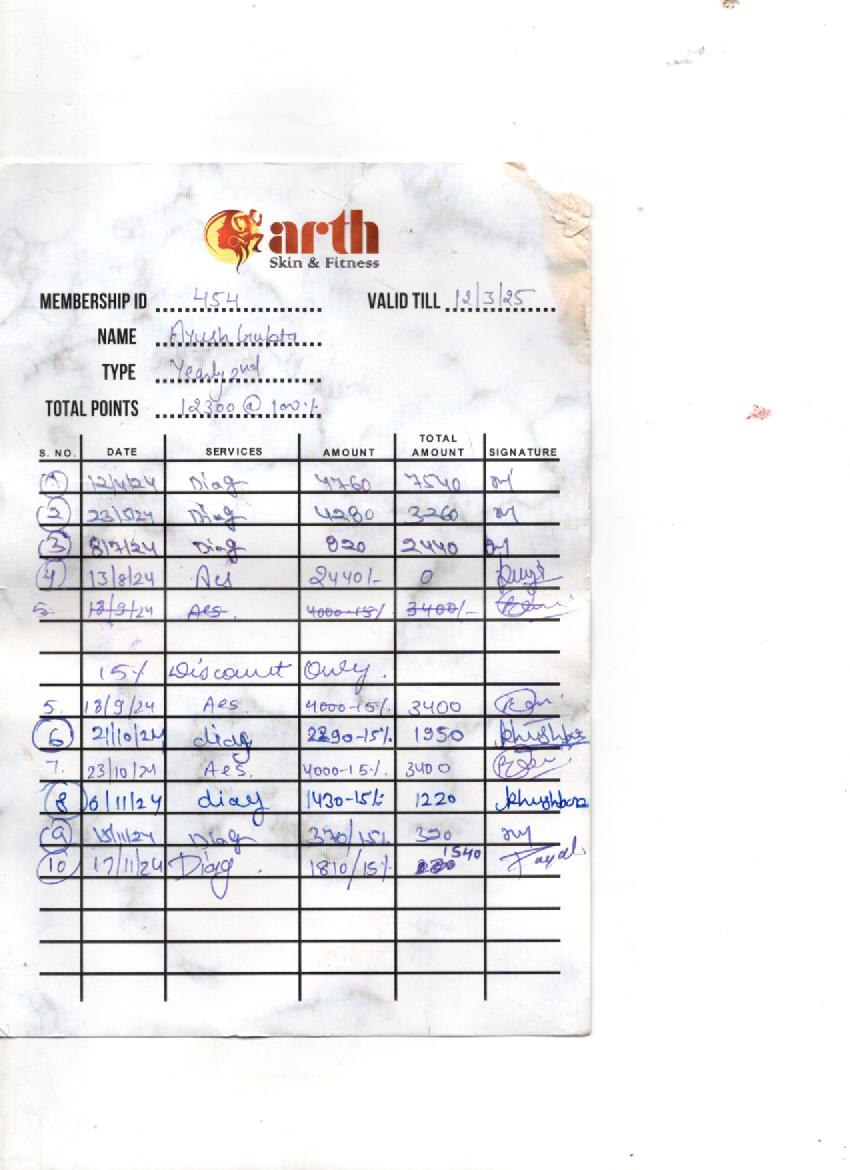 arth
Skin & Fitness
MEMBERSHIP ID 454 VALID TILL 12/3/25
NAME Ayush Gupta
TYPE Yearly 2nd
TOTAL POINTS 12300 @ 100%
S. NO. DATE SERVICES AMOUNT TOTAL AMOUNT SIGNATURE
1 12/4/24 Diag 4760 7540
2 23/5/24 Diag 4280 3260
3 8/7/24 Diag 820 2440
4 13/8/24 Aes 2440/- 0
5. 18/9/24 Aes. 4000-15% 3400/-
15% Discount Only.
5. 18/9/24 Aes. 4000-15% 3400
6 21/10/24 diag 2290-15% 1950 khushboo
7. 23/10/24 Aes. 4000-15% 3400
8 6/11/24 diag 1430-15% 1220 khushboo
9 15/11/24 Diag 370/15% 320
10 17/11/24 Diag. 1810/15% 1540 Payal